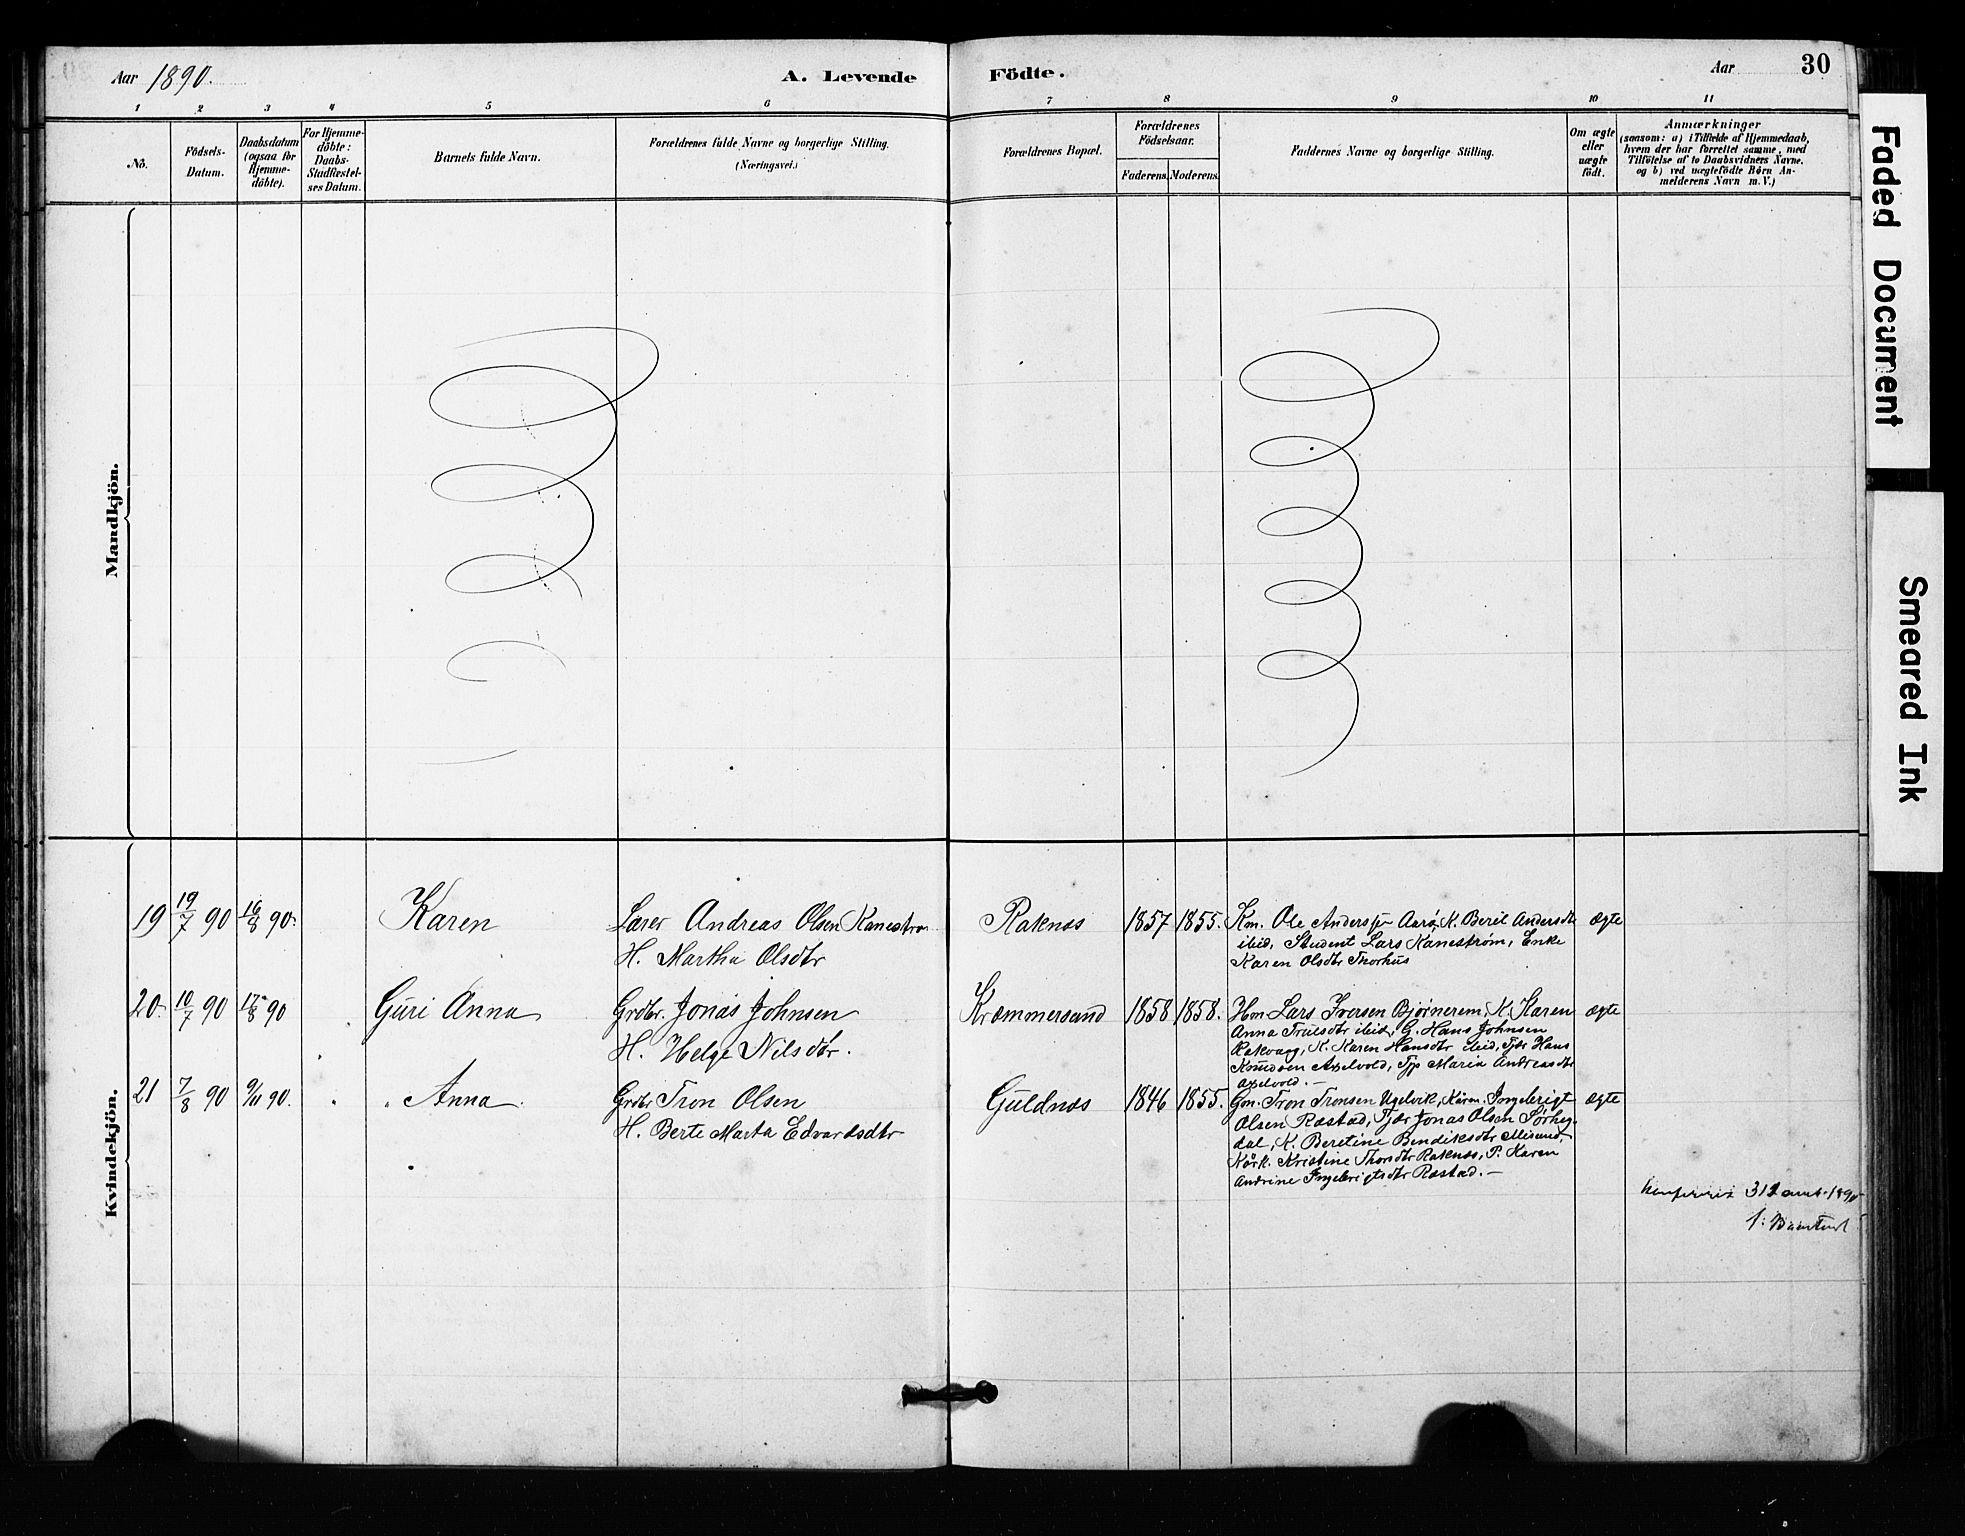 Aar 1890.
A. Levende
Födte.
Aar
30
1 2 3 4 5 6 7 8 9 10 11
Nö.
Födsels-
Datum.
Daabsdatum
(ogsaa for
Hjemme-
döbte).
For Hjemme-
döbte:
Daabs-
Stadfæstel-
ses Datum.
Barnets fulde Navn.
Forældrenes fulde Navne og borgerlige Stilling.
(Næringsvei.)
Forældrenes Bopæl.
Forældrenes
Födselsaar.
Faderens.
Moderens.
Faddernes Navne og borgerlige Stilling.
Om ægte
eller
uægte
födt.
Anmærkninger
(saasom: a) i Tilfælde af Hjemmedaab,
hvem der har forrettet samme, med
Tilföielse af to Daabsvidners Navne.
og b) ved uægtefödte Börn An-
melderens Navn m. V.)
Mandkjön.
Kvindekjön.
19 19/7 90 16/8 90. Karen Lærer Andreas Olsen Kanestrøm
H. Martha Olsdtr
Raknæs 1857 1855. Km. Ole Anderssen Aarø, K. Berit Andersdtr ægte
ibid, Student Lars Kanestrøm, Enke
Karen Olsdtr Thorhus
20. 10/7 90 17/8 90 Guri Anna Grdbr. Jonas Johnsen
H. Helge Nilsdtr.
Kræmmersund 1858 1858. Hm Lars Iversen Bjørnerem, K. Karen ægte
Anna Trulsdtr ibid, G. Hans Johnsen
Rakvaag, K. Karen Hansdtr ibid, Tjdr Hans
Knudsen Axelvold, Tjp Maria Andreasdtr
Axelvold. —
21 7/8 90 9/11 90. Anna. Grdbr Tron Olsen
H. Berte Marta Edvardsdtr
Guldnæs 1846 1855. Gm. Tron Tronsen Ugelvik, Kaarm. Ingebrigt ægte
Olsen Røstad, Tjdr Jonas Olsen Sørhey-
dal, K. Beretine Bendiksdtr Misund,
Kårk. Kristine Thorsdtr Raknæs, P. Karen
Andrine Ingebrigtsdtr Røstad. —
Faded Document
Smeared Ink